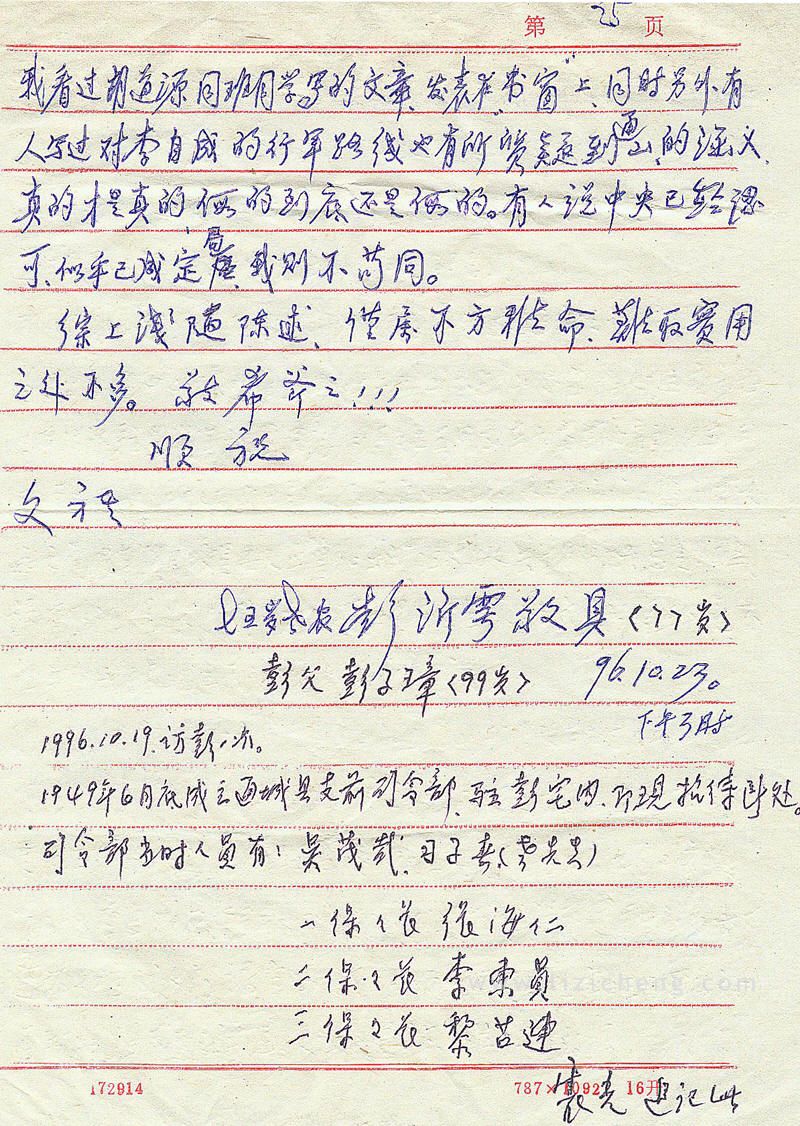 第 25 页
我看过胡道源同班同学写的文章,发表在"书窗"上,同时另外有
人写过对李自成的行军路线也有所"质疑到通山"的涵义,
真的才是真的假的到底还是假的。有人说中央已经认
可,似乎已成定局,我则不苟同。
综上浅陋陈述,仅属不方,费用
之处不多。敬希斧之!!!
顺祝
文祺
七五岁老农彭沂雩敬具<77岁>
彭父 彭子璋<99岁> 96.10.23。
下午3时
1996.10.19.访彭一次。
1949年6月底成立通城县支前司令部,驻彭宅内,即现招待所处。
司令部当时人员有:吴茂哉,
一保保长 张海仁
二保保长 李东员
三保保长 黎苔连
www.lizicheng.com
172914 787×1092 16开
追记